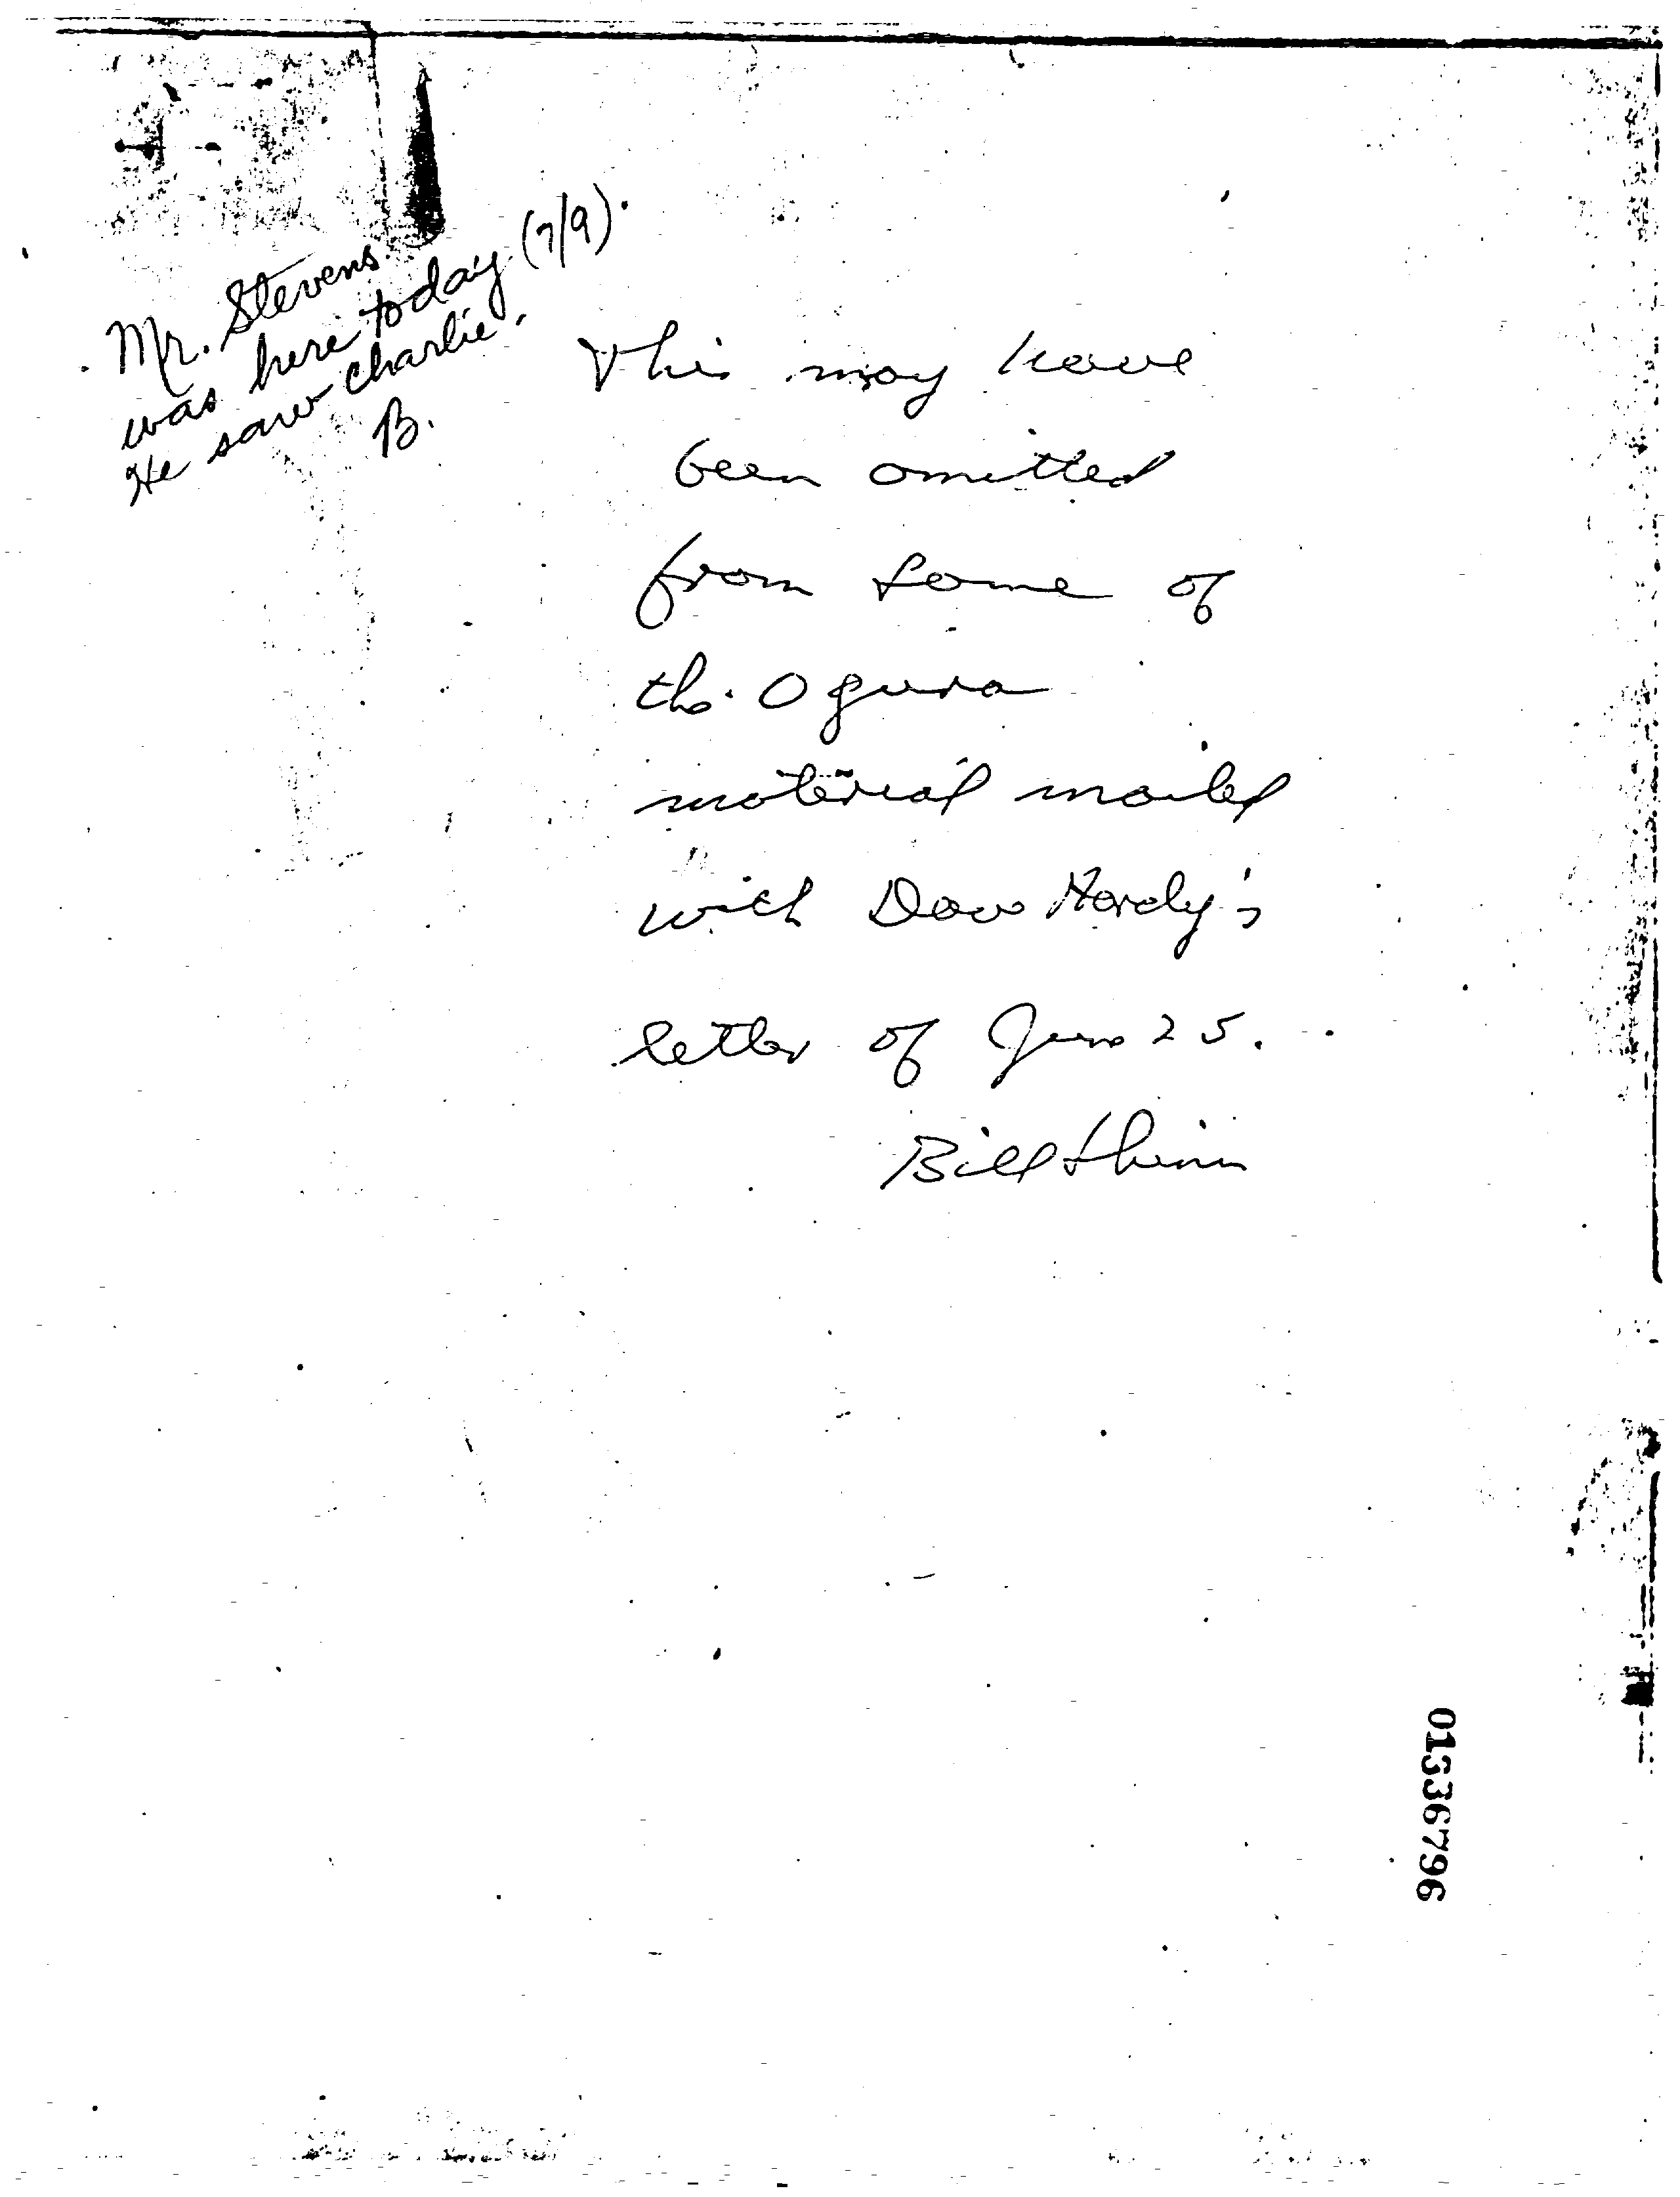 Mr. Stevens
was here today (7/9).
He saw Charlie.
B.
This may have
been omitted
from some of
the Ogura
material mailed
with Dave Hardy's
letter of June 25.
Bill Shinn
01336796